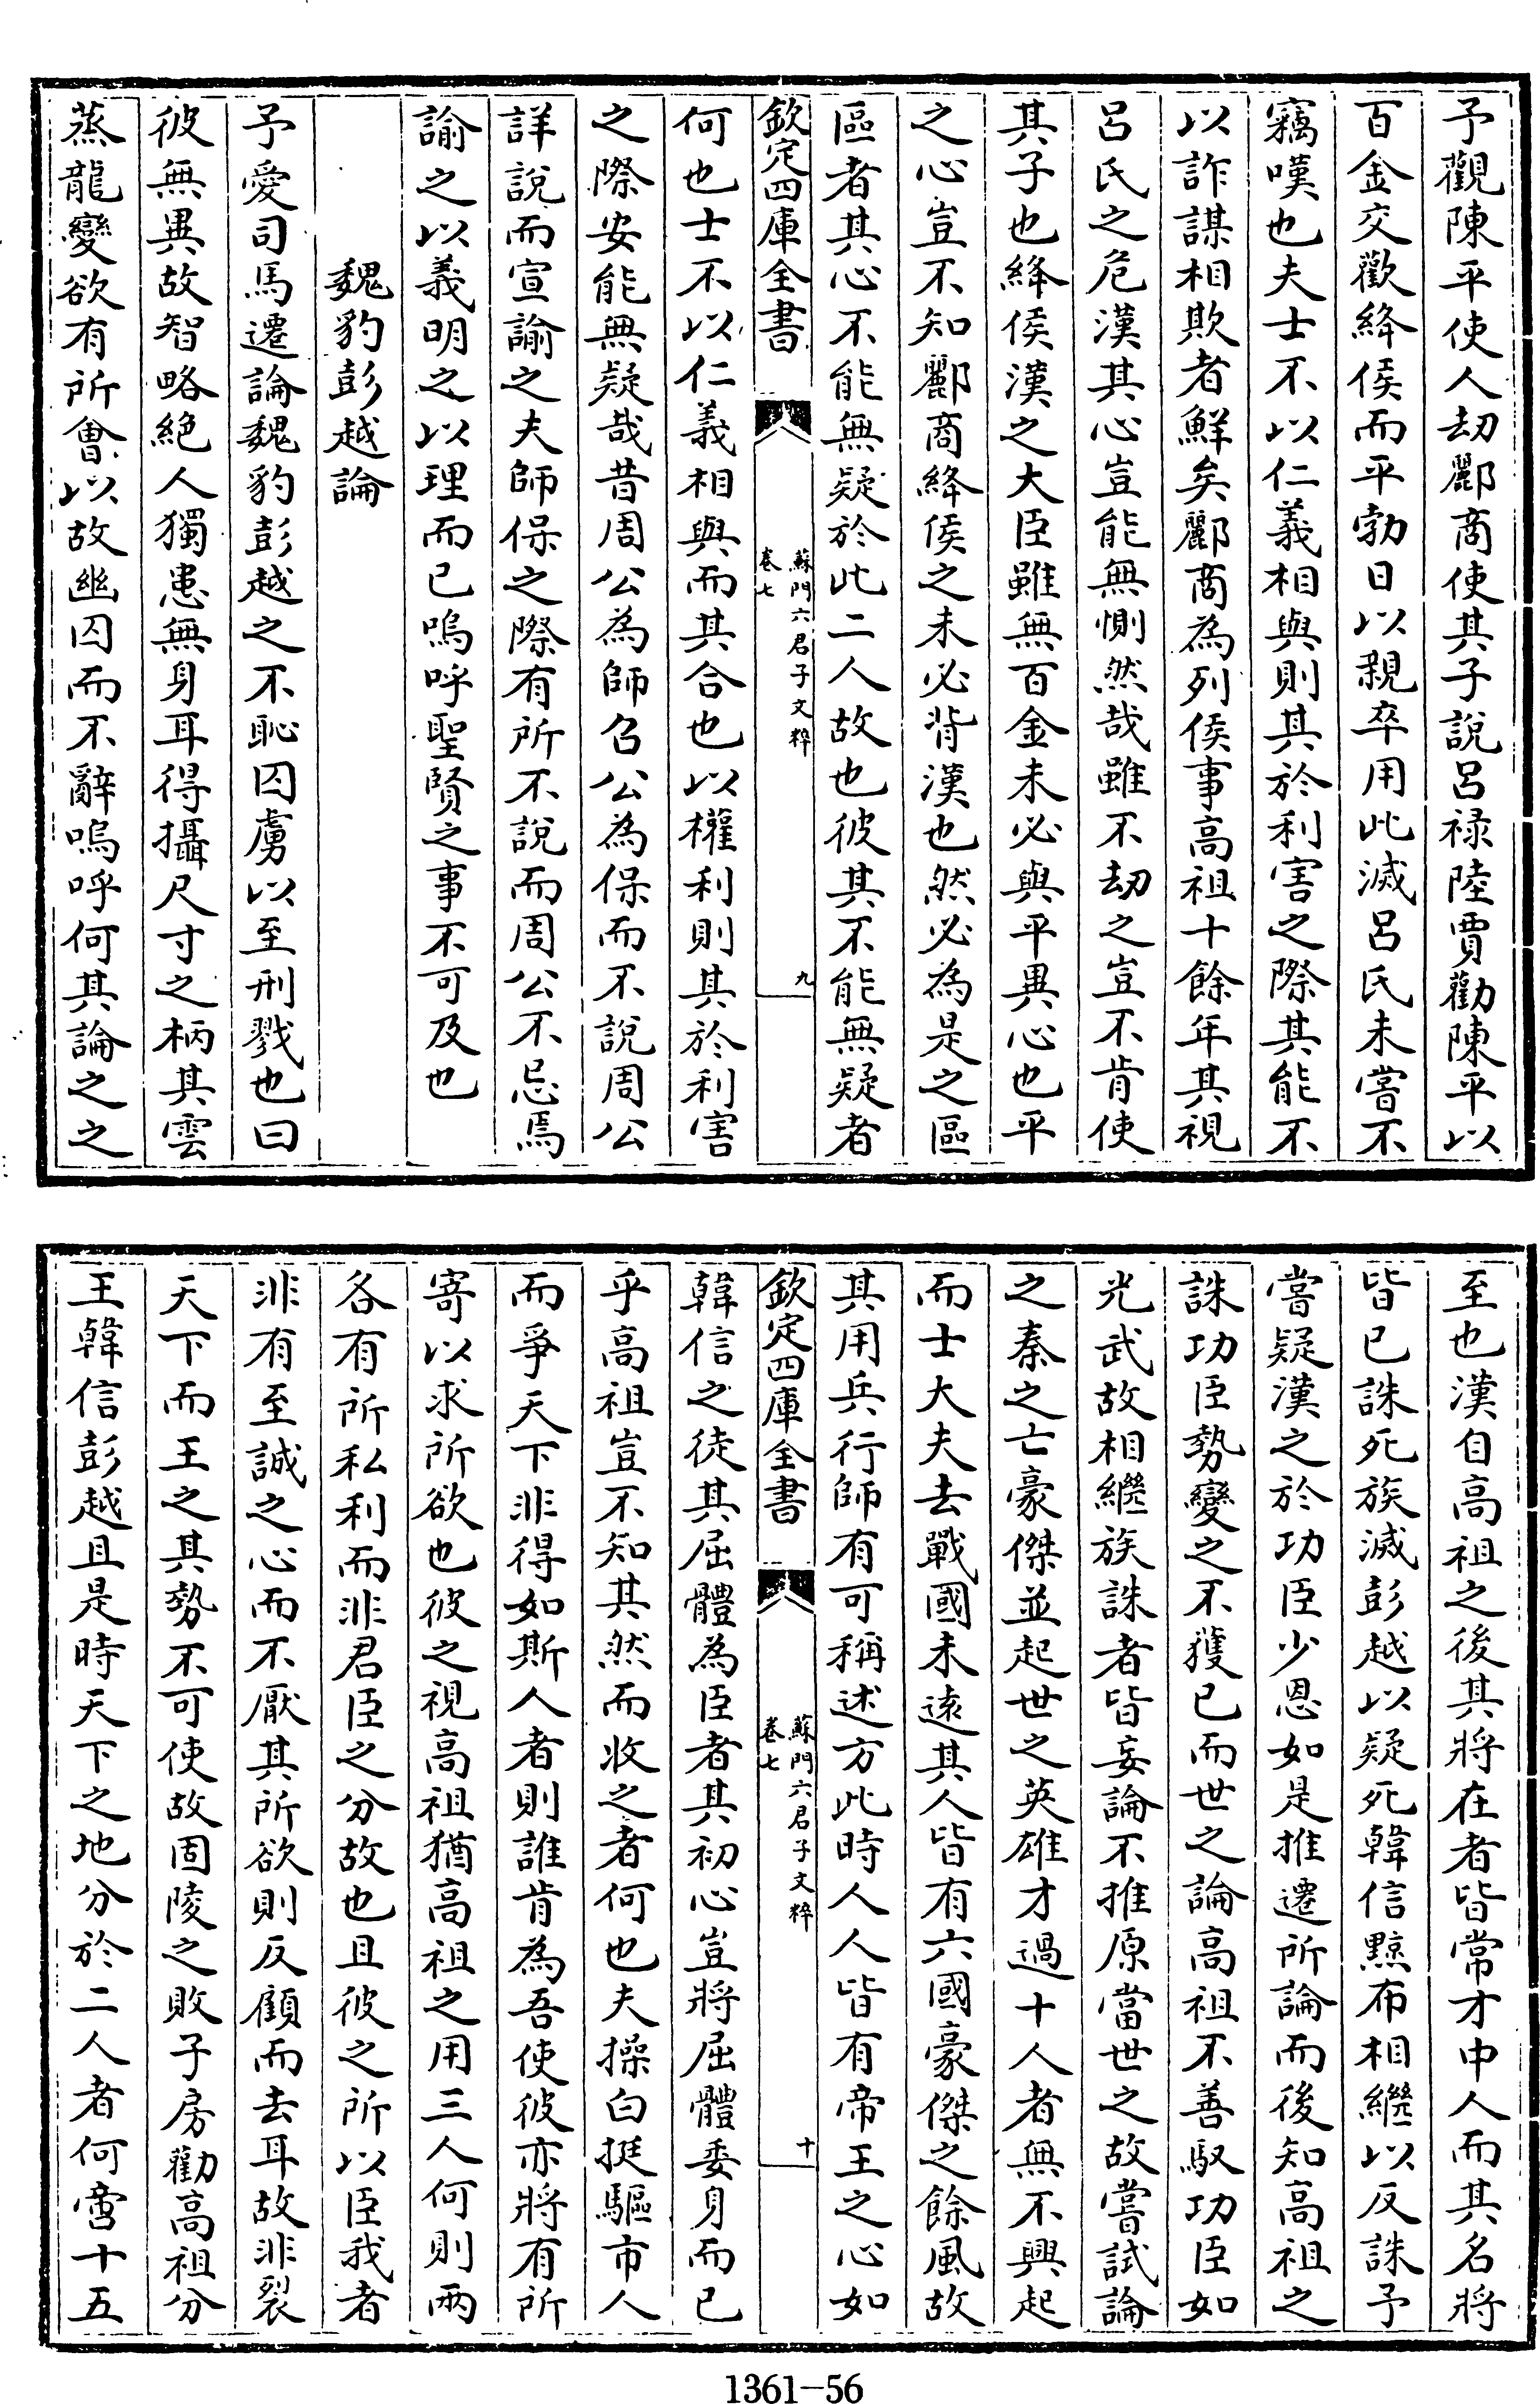 予觀陳平使人刼酈商使其子說呂祿陸賈勸陳平以
百金交歡絳侯而平勃日以親卒用此滅呂氏未嘗不
竊嘆也夫士不以仁義相與則其於利害之際其能不
以詐謀相欺者鮮矣酈商為列侯事高祖十餘年其視
呂氏之危漢其心豈能無惻然哉雖不刼之豈不肯使
其子也絳侯漢之大臣雖無百金未必與平異心也平
之心豈不知酈商絳侯之未必背漢也然必為是之區
區者其心不能無疑於此二人故也彼其不能無疑者
欽定四庫全書
蘇門六君子文粹
卷七
九
何也士不以仁義相與而其合也以權利則其於利害
之際安能無疑哉昔周公為師召公為保而不說周公
詳說而宣諭之夫師保之際有所不說而周公不忌焉
諭之以義明之以理而已嗚呼聖賢之事不可及也
魏豹彭越論
予愛司馬遷論魏豹彭越之不恥囚虜以至刑戮也曰
彼無異故智略絶人獨患無身耳得攝尺寸之柄其雲
蒸龍變欲有所會以故幽囚而不辭嗚呼何其論之之
至也漢自高祖之後其將在者皆常才中人而其名將
皆已誅死族滅彭越以疑死韓信黥布相繼以反誅予
嘗疑漢之於功臣少恩如是推遷所論而後知高祖之
誅功臣勢變之不獲已而世之論高祖不善馭功臣如
光武故相繼族誅者皆妄論不推原當世之故嘗試論
之秦之亡豪傑並起世之英雄才過十人者無不興起
而士大夫去戰國未遠其人皆有六國豪傑之餘風故
其用兵行師有可稱述方此時人人皆有帝王之心如
欽定四庫全書
蘇門六君子文粹
卷七
十
韓信之徒其屈體為臣者其初心豈將屈體委身而已
乎高祖豈不知其然而收之者何也夫操白挺驅市人
而爭天下非得如斯人者則誰肯為吾使彼亦將有所
寄以求所欲也彼之視高祖猶高祖之用三人何則兩
各有所私利而非君臣之分故也且彼之所以臣我者
非有至誠之心而不厭其所欲則反顧而去耳故非裂
天下而王之其勢不可使故固陵之敗子房勸高祖分
王韓信彭越且是時天下之地分於二人者何啻十五
1361-56